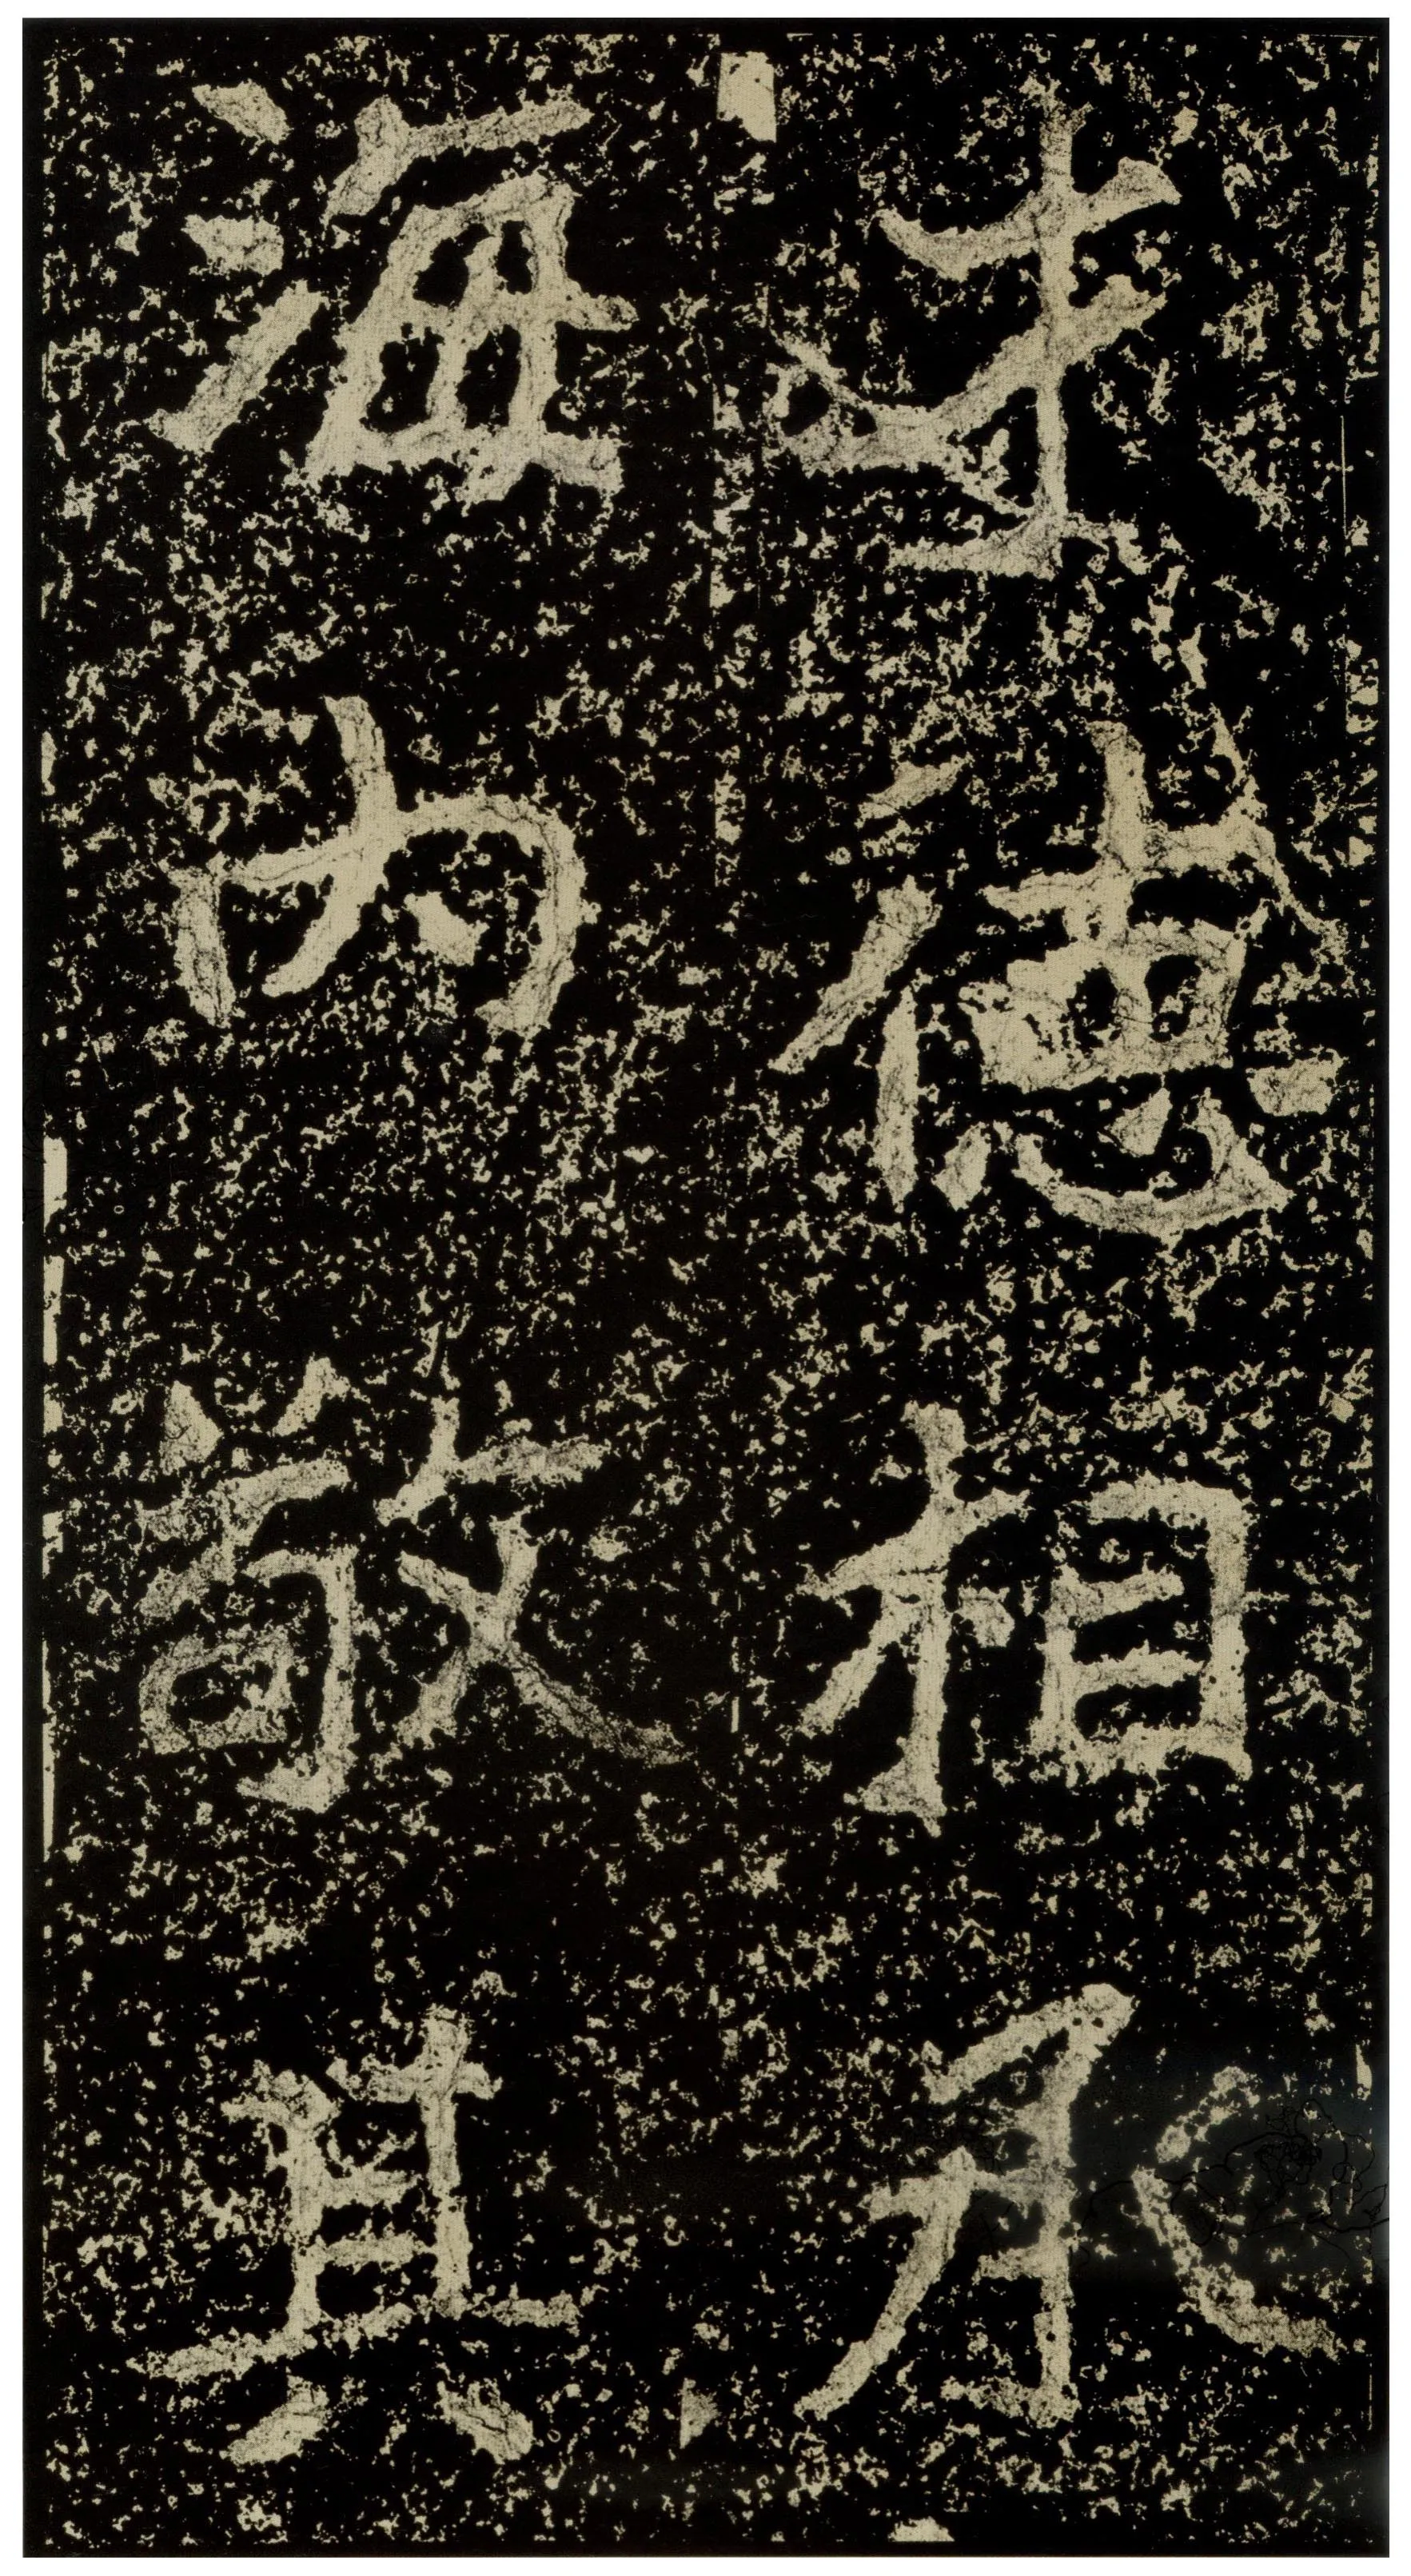 才德相承
海内敬其